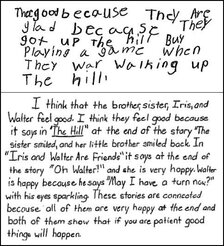 The good because They Are
glad because They
got up The hill Buy
Playing a game when
They war walking up
The hill!
I think that the brother, sister, Iris, and
Walter feel good. I think they feel good because
it says in "The Hill" at the end of the story "The
sister smiled, and her little brother smiled back. In
"Iris and Walter Are Friends" it says at the end of
the story "Oh Walter!" and she is very happy. Walter
is happy because he says "May I have a turn now?"
with his eyes sparkling. These stories are connected
because all of them are very happy at the end and
both of them show that if you are patient good
things will happen.